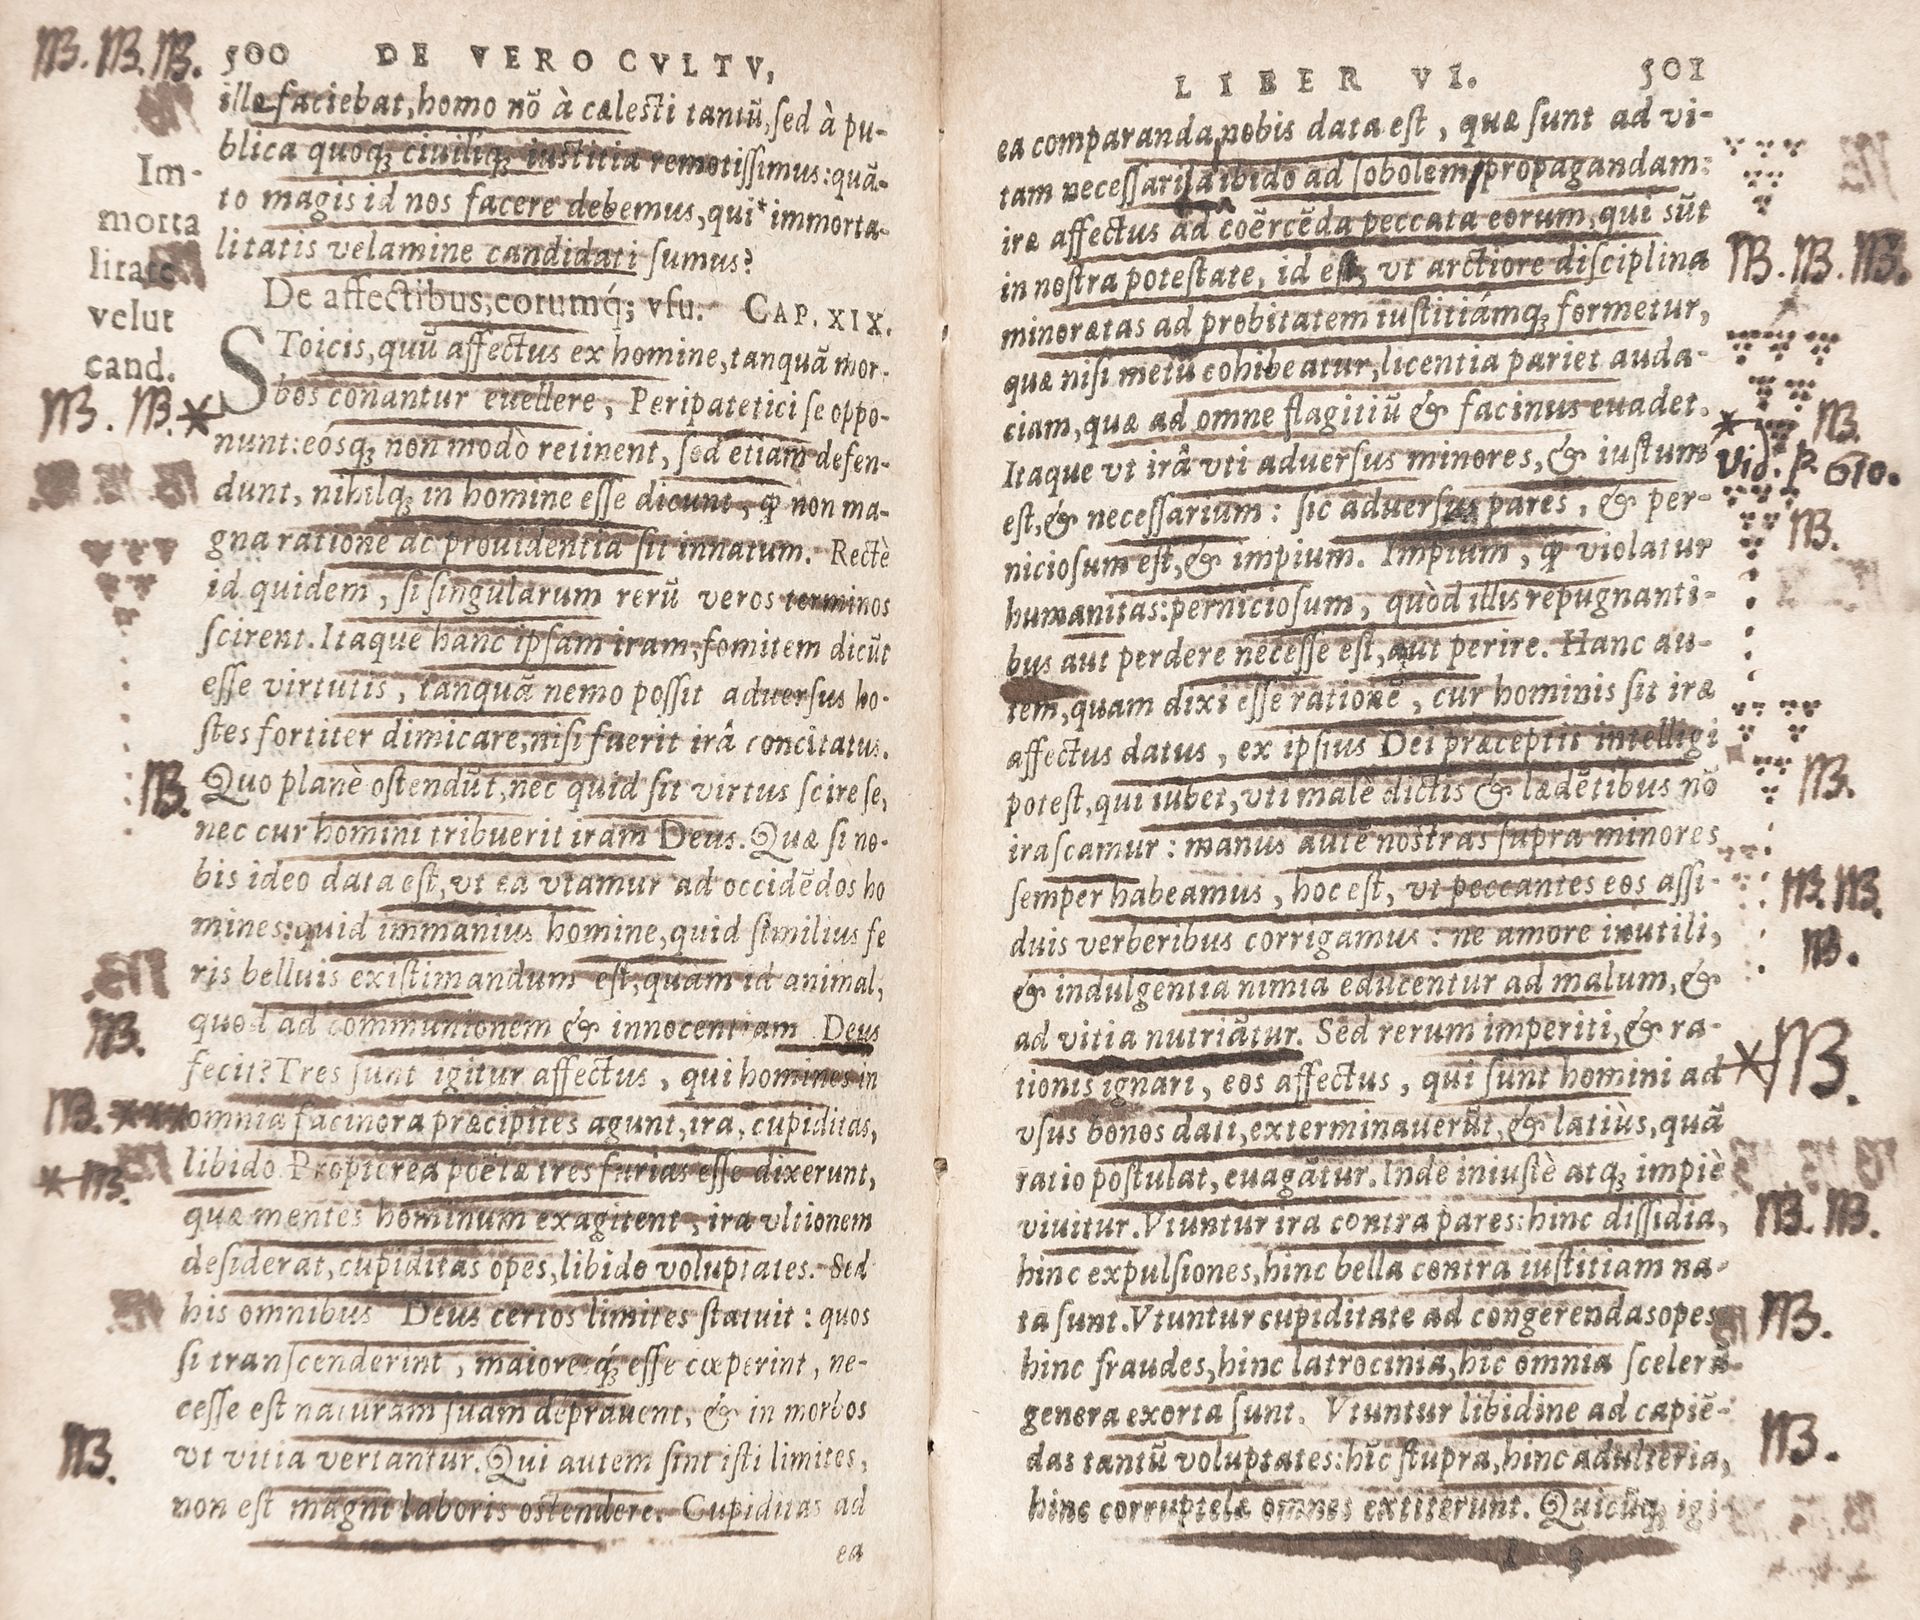 NB. NB. NB.
500 DE VERO CVLTV,
ille faciebat, homo nõ à cælesti tantũ, sed à pu-
blica quoq; ciuiliq; iustitia remotissimus: quã-
to magis id nos facere debemus, qui* immorta-
litatis velamine candidati sumus?
Im-
morta
litate
velut
cand.
De affectibus, eorumq́; vsu. CAP. XIX.
SToicis, quũ affectus ex homine, tanquã mor-
bos conantur euellere, Peripatetici se oppo-
NB. NB. *
nunt: eosq; non modò retinent, sed etiam defen-
dunt, nihilq; in homine esse dicunt, ꝙ non ma-
gna ratione ac prouidentia sit innatum. Rectè
id quidem, si singularum rerũ veros terminos
scirent. Itaque hanc ipsam iram, fomitem dicũt
esse virtutis, tanquã nemo possit aduersus ho-
stes fortiter dimicare, nisi fuerit irâ concitatus.
NB.
Quo planè ostendũt, nec quid sit virtus scire se,
nec cur homini tribuerit iram Deus. Quæ si no-
bis ideo data est, vt ea vtamur ad occidẽdos ho
mines: quid immanius homine, quid similius fe
ris belluis existimandum est, quam id animal,
NB.
quod ad communionem & innocentiam Deus
fecit? Tres sunt igitur affectus, qui homines in
NB. ***
omnia facinora præcipites agunt, ira, cupiditas,
* NB.
libido. Propterea poëtæ tres furias esse dixerunt,
quæ mentes hominum exagitent, ira vltionem
desiderat, cupiditas opes, libido voluptates. Sed
his omnibus Deus certos limites statuit: quos
si transcenderint, maioreq́; esse cœperint, ne-
cesse est naturam suam deprauent, & in morbos
NB.
vt vitia vertantur. Qui autem sint isti limites,
non est magni laboris ostendere. Cupiditas ad
ea
LIBER VI. 501
ea comparanda nobis data est, quæ sunt ad vi-
tam necessaria libido ad sobolem propagandam:
iræ affectus ad coẽrcẽda peccata eorum, qui sũt
NB. NB. NB.
in nostra potestate, id est, vt arctiore disciplina
minor ætas ad probitatem iustitiámq; formetur,
quæ nisi metũ cohibeatur, licentia pariet auda-
ciam, quæ ad omne flagitiũ & facinus euadet.
* NB.
Itaque vt irâ vti aduersus minores, & iustum
Vid. p. 610.
est, & necessarium: sic aduersus pares, & per-
NB.
niciosum est, & impium. Impium, ꝙ violatur
humanitas: perniciosum, quòd illis repugnanti-
bus aut perdere necesse est, aut perire. Hanc au-
tem, quam dixi esse rationẽ, cur hominis sit iræ
affectus datus, ex ipsius Dei præceptis intelligi
NB.
potest, qui iubet, vti malè dictis & lædẽtibus nõ
irascamur: manus autẽ nostras supra minores
NB. NB.
semper habeamus, hoc est, vt peccantes eos assi-
NB.
duis verberibus corrigamus: ne amore inutili,
& indulgentia nimia educentur ad malum, &
ad vitia nutriãtur. Sed rerum imperiti, & ra-
* NB.
tionis ignari, eos affectus, qui sunt homini ad
vsus bonos dati, exterminauerũt, & latiùs, quã
ratio postulat, euagãtur. Inde iniustè atq; impiè
NB. NB.
viuitur. Vtuntur ira contra pares: hinc dissidia,
hinc expulsiones, hinc bella contra iustitiam na-
NB.
ta sunt. Vtuntur cupiditate ad congerendas opes
hinc fraudes, hinc latrocinia, hic omnia scelerũ
genera exorta sunt. Vtuntur libidine ad capiẽ-
NB.
das tantũ voluptates: hĩc stupra, hinc adulteria,
hinc corruptelæ omnes extiterunt. Quicũq; igi-